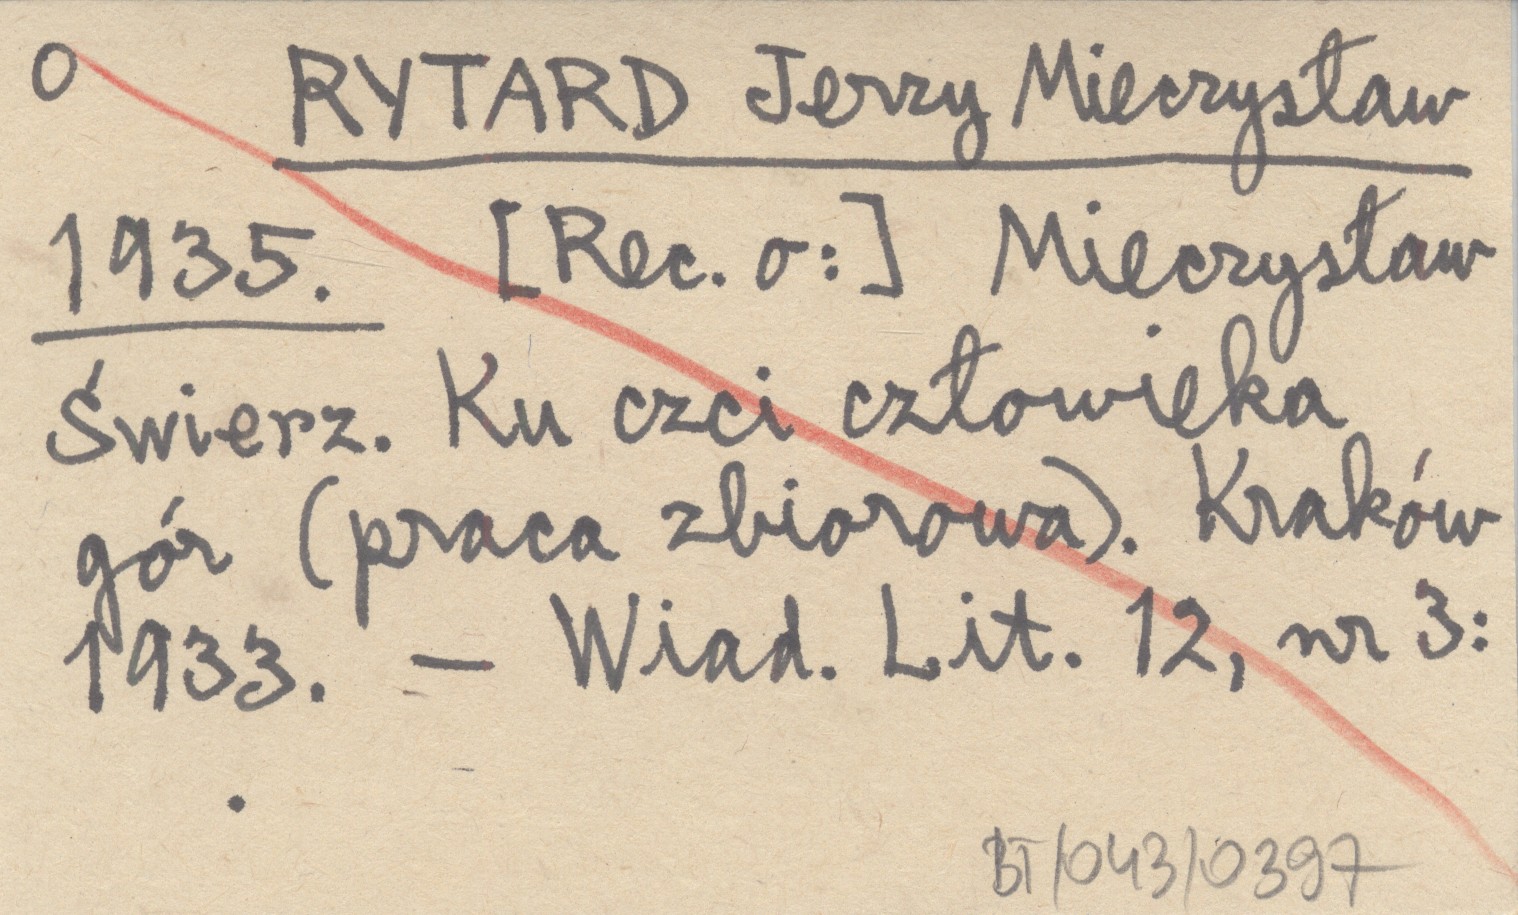 O RYTARD Jerzy Mieczysław
1935. [Rec. o:] Mieczysław
Świerz. Ku czci człowieka
gór (praca zbiorowa). Kraków
1933. — Wiad. Lit. 12, nr 3:
.
BT/043/0397